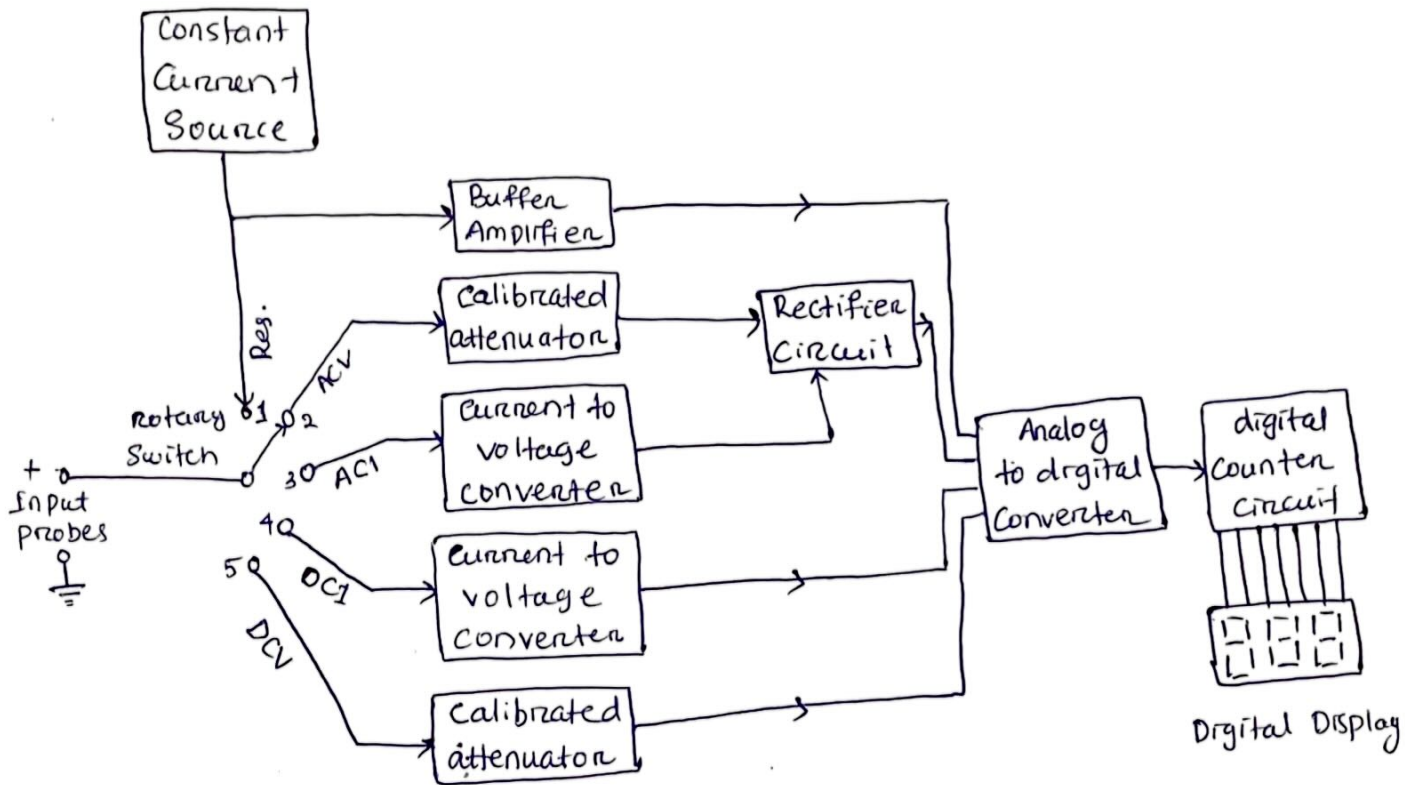 Constant
Current
Source
Buffer
Amplifier
Res.
ACV
Calibrated
attenuator
Rectifier
Circuit
Rotary
Switch
1
2
3
ACI
Current to
voltage
converter
+
Input
probes
4
DCI
Current to
voltage
converter
5
DCV
Calibrated
attenuator
Analog
to digital
Converter
digital
counter
circuit
888
Digital Display